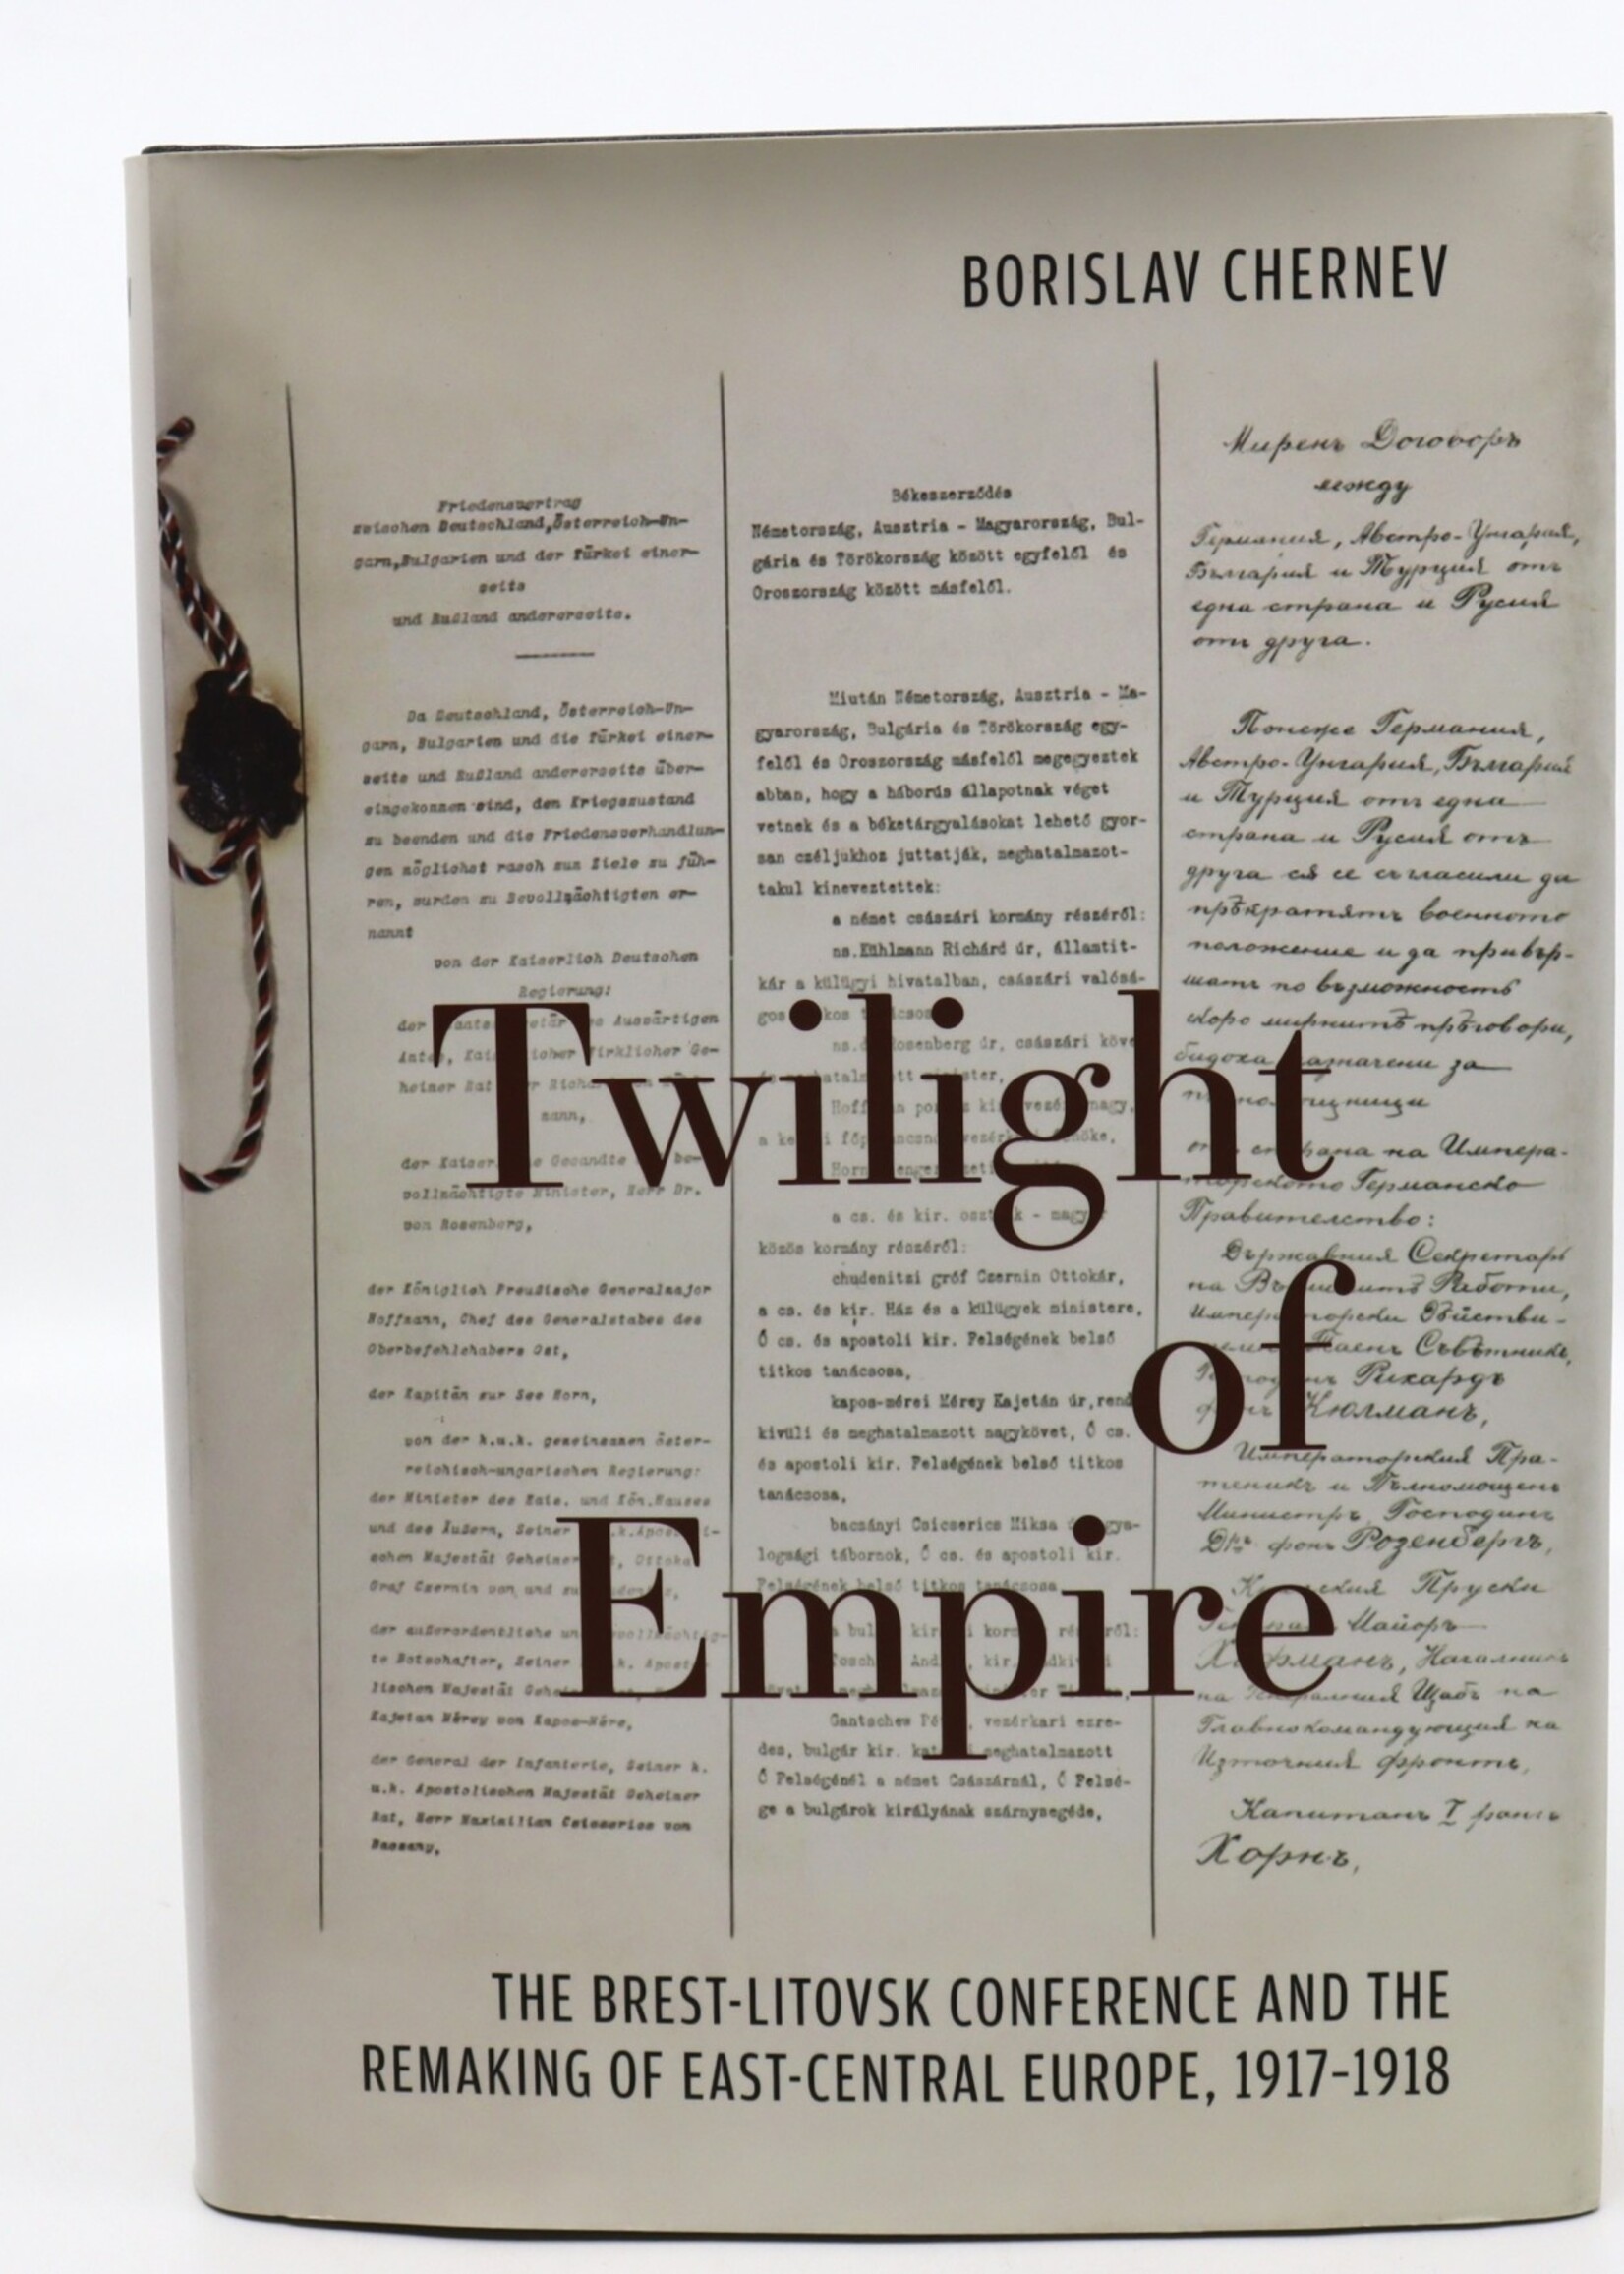 BORISLAV CHERNEV
Friedensvertrag
zwischen Deutschland, Österreich-Un-
garn, Bulgarien und der Türkei einer-
seits
und Rußland andererseits.
Da Deutschland, Österreich-Un-
garn, Bulgarien und die Türkei einer-
seits und Rußland andererseits über-
eingekommen sind, den Kriegszustand
zu beenden und die Friedensverhandlun-
gen möglichst rasch zum Ziele zu füh-
ren, wurden zu Bevollmächtigten er-
nannt
von der Kaiserlich Deutschen
Regierung:
der Auswärtigen
heiner Rat
mann,
der Kaiser Gesandte be-
vollmächtigte Minister, Herr Dr.
von Rosenberg,
der Königlich Preußische Generalmajor
Hoffmann, Chef des Generalstabes des
Oberbefehlshabers Ost,
der Kapitän zur See Horn,
von der k.u.k. gemeinsamen öster-
reichisch-ungarischen Regierung:
der Minister des Kais. und Kön. Hauses
und des Äußern, Seiner
schen Majestät Geheimer Ottokar
Graf Czernin von und zu
der außerordentliche und
te Botschafter, Seiner
lischen Majestät
Kajetan Mérey von Kapos-Mére,
der General der Infanterie, Seiner k.
u.k. Apostolischen Majestät Geheimer
Rat, Herr Maximilian Csicserics von
Bacsany,
Békeszerződés
Németország, Ausztria - Magyarország, Bul-
gária és Törökország között egyfelől és
Oroszország között másfelől.
Miután Németország, Ausztria - Ma-
gyarország, Bulgária és Törökország egy-
felől és Oroszország másfelől megegyeztek
abban, hogy a háborús állapotnak véget
vetnek és a béketárgyalásokat lehető gyor-
san czéljukhoz juttatják, meghatalmazot-
takul kineveztettek:
a német császári kormány részéről:
ns. Kühlmann Richárd úr, államtit-
kár a külügyi hivatalban, császári valósá-
gos
ns. Rosenberg úr, császári köve
a cs. és kir. osztrák - magyar
közös kormány részéről:
chudenitzi gróf Czernin Ottokár,
a cs. és kir. Ház és a külügyek ministere,
Ő cs. és apostoli kir. Felségének belső
titkos tanácsosa,
kapos-mérei Mérey Kajetán úr, rend
kivüli és meghatalmazott nagykövet, Ő cs.
és apostoli kir. Felségének belső titkos
tanácsosa,
bacsányi Csicserics Miksa gya-
logsági tábornok, Ő cs. és apostoli kir.
Felségének belső titkos tanácsosa
Gantschew vezérkari ezre-
des, bulgár kir. meghatalmazott
Ő Felségénél a német Császárnál, Ő Felsé-
ge a bulgárok királyának szárnysegéde,
Миренъ Договоръ
между
Германия, Австро-Унгария,
България и Турция отъ
една страна и Русия
отъ друга.
Понеже Германия,
Австро-Унгария, България
и Турция отъ една
страна и Русия отъ
друга сѫ се съгласили да
прѣкратятъ военното
положение и да привър-
шатъ по възможность
скоро мирнитѣ прѣговори,
бидоха назначени за
отъ страна на Импера-
торското Германско
Правителство:
Държавния Секретарь
на Работи,
Императорски Дѣйстви-
Таенъ Съвѣтникъ,
Рихардъ
фонъ Кюлманъ,
Императорския Пра-
теникъ и Пълномощенъ
Министръ Господинъ
Д-ръ фонъ Розенбергъ,
Пруски
Майоръ
Хофманъ, Началникъ
на Генералния Щабъ на
Главнокомандующия на
Източния фронтъ,
Капитанъ I рангъ
Хорнъ,
Twilight
of
Empire
THE BREST-LITOVSK CONFERENCE AND THE
REMAKING OF EAST-CENTRAL EUROPE, 1917–1918